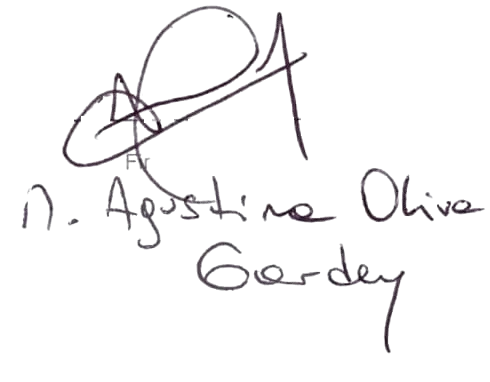 Fir
M. Agustina Oliva
Garday